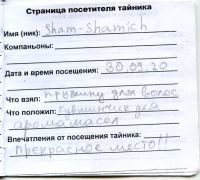 Страница посетителя тайника
Имя (ник): Sham-Shamich
Компаньоны:
Дата и время посещения: 30.09.20
Что взял: пружину для волос
Что положил: Кувшинчик для
аромамасол
Впечатления от посещения тайника:
Прекрасное место!!